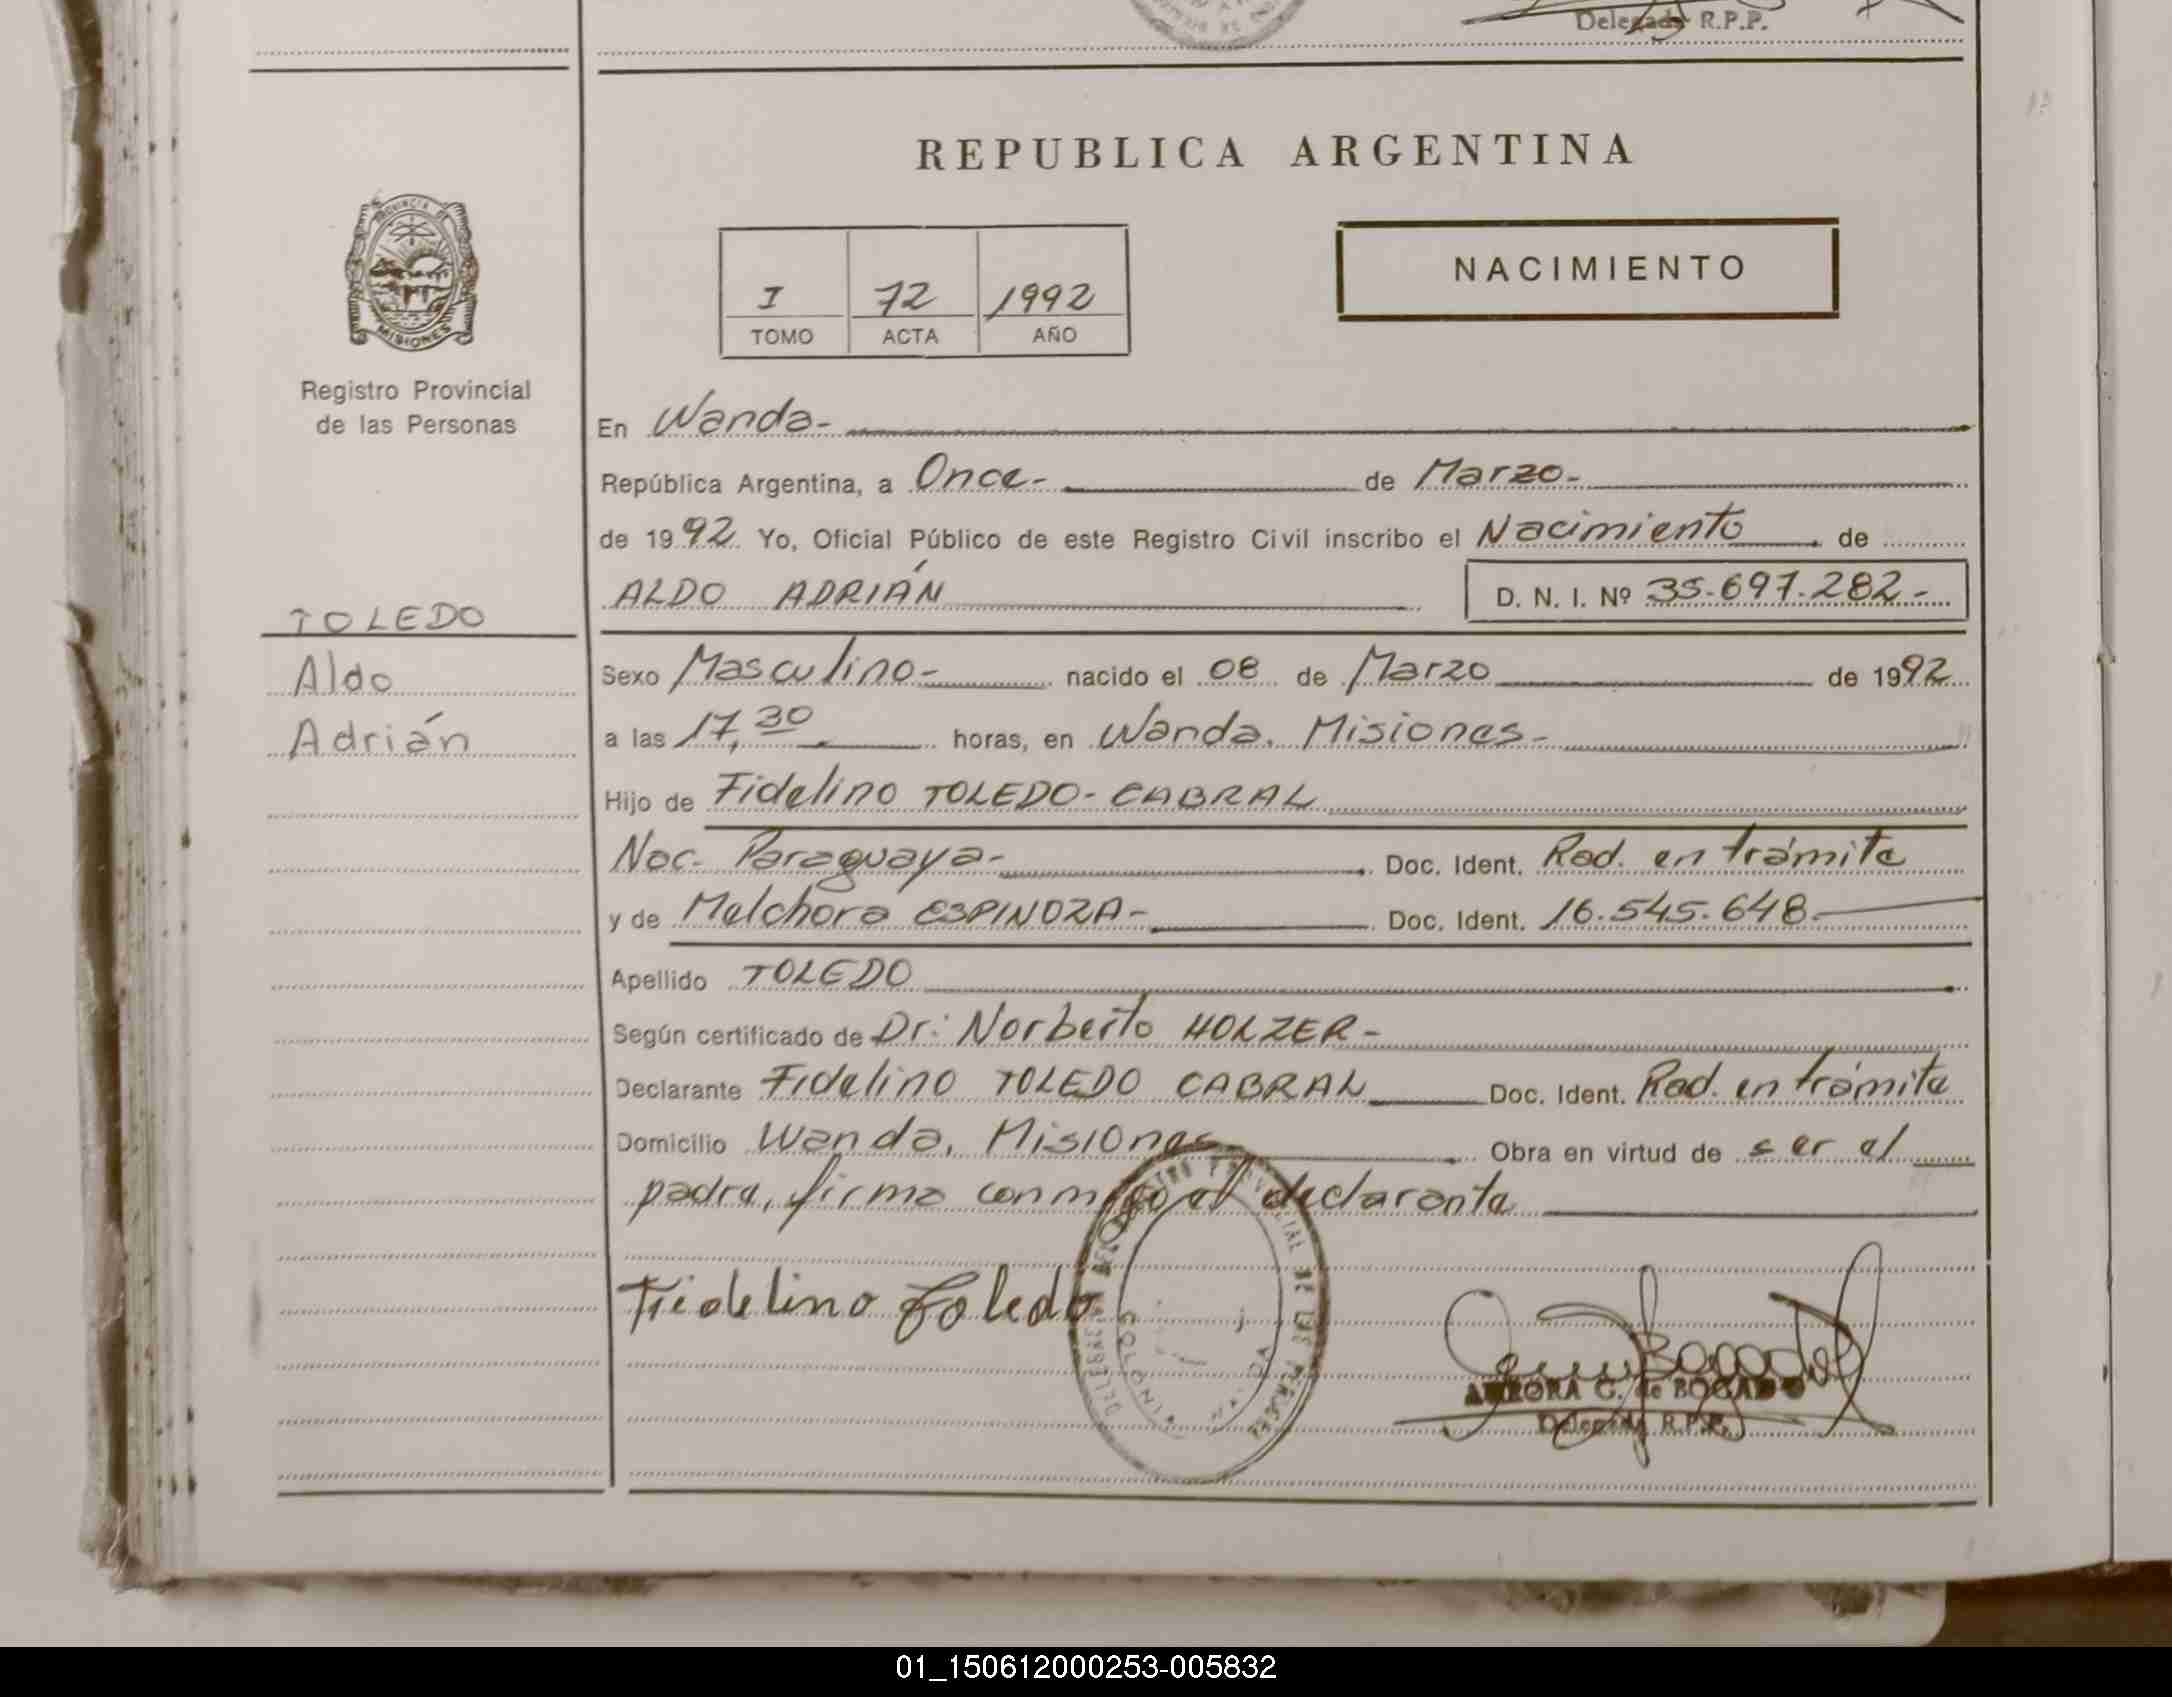 Delegada R.P.P.
REPUBLICA ARGENTINA
PROVINCIA DE
MISIONES
Registro Provincial
de las Personas
I 72 1992
TOMO ACTA AÑO
NACIMIENTO
En Wanda-
República Argentina, a Once- de Marzo-
de 1992 Yo, Oficial Público de este Registro Civil inscribo el Nacimiento de
ALDO ADRIÁN D. N. I. Nº 35.697.282-
TOLEDO
Aldo
Adrián
Sexo Masculino- nacido el 08 de Marzo de 1992
a las 17,30 horas, en Wanda, Misiones-
Hijo de Fidelino TOLEDO-CABRAL
Nac. Paraguaya- Doc. Ident. Rad. en trámite
y de Melchora ESPINOZA- Doc. Ident. 16.545.648.
Apellido TOLEDO
Según certificado de Dr: Norberto HOLZER-
Declarante Fidelino TOLEDO CABRAL Doc. Ident. Rad. en trámite
Domicilio Wanda, Misiones Obra en virtud de ser el
padre, firma conmigo el declarante
Fidelino Toledo
AURORA G. de BOGADO
Delegada R.P.P.
01_150612000253-005832